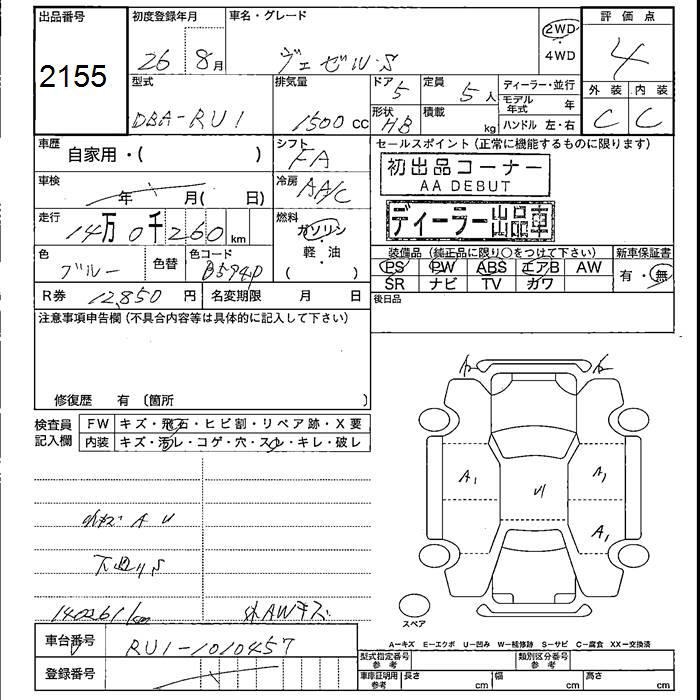 出品番号 初度登録年月 車名・グレード 評価点
2155 26 8月 ヴェゼル・S 2WD・4WD 4
型式 排気量 ドア 定員 ディーラー・並行 外装 内装
DBA-RU1 1500cc 5 5人 モデル年式 年 C C
形状 HB 積載 kg ハンドル 左・右
車歴 自家用・( ) シフト FA セールスポイント(正常に機能するものに限ります)
初出品コーナー
AA DEBUT
車検 年 月( 日) 冷房 AA/C
ディーラー出品車
走行 14万0千260km 燃料 ガソリン・軽・油( )
装備品(純正品に限り○をつけて下さい) 新車保証書
色 ブルー 色替 色コード B594P
PS PW ABS エアB AW 有・無
SR ナビ TV カワ
R券 12,850円 名変期限 月 日
後日品
注意事項申告欄(不具合内容等は具体的に記入して下さい)
修復歴 有 〔箇所 〕
検査員記入欄 FW キズ・飛石・ヒビ割・リペア跡・X要
内装 キズ・汚レ・コゲ・穴・スレ・キレ・破レ
A1 A1
A1
140261km 外AWキズ
スペア
A=キズ E=エクボ U=凹み W=補修跡 S=サビ C=腐食 XX=交換済
車台番号 RU1-1010457
型式指定番号 参考 類別区分番号 参考
登録番号
車庫証明用 参考 長さ cm 幅 cm 高さ cm